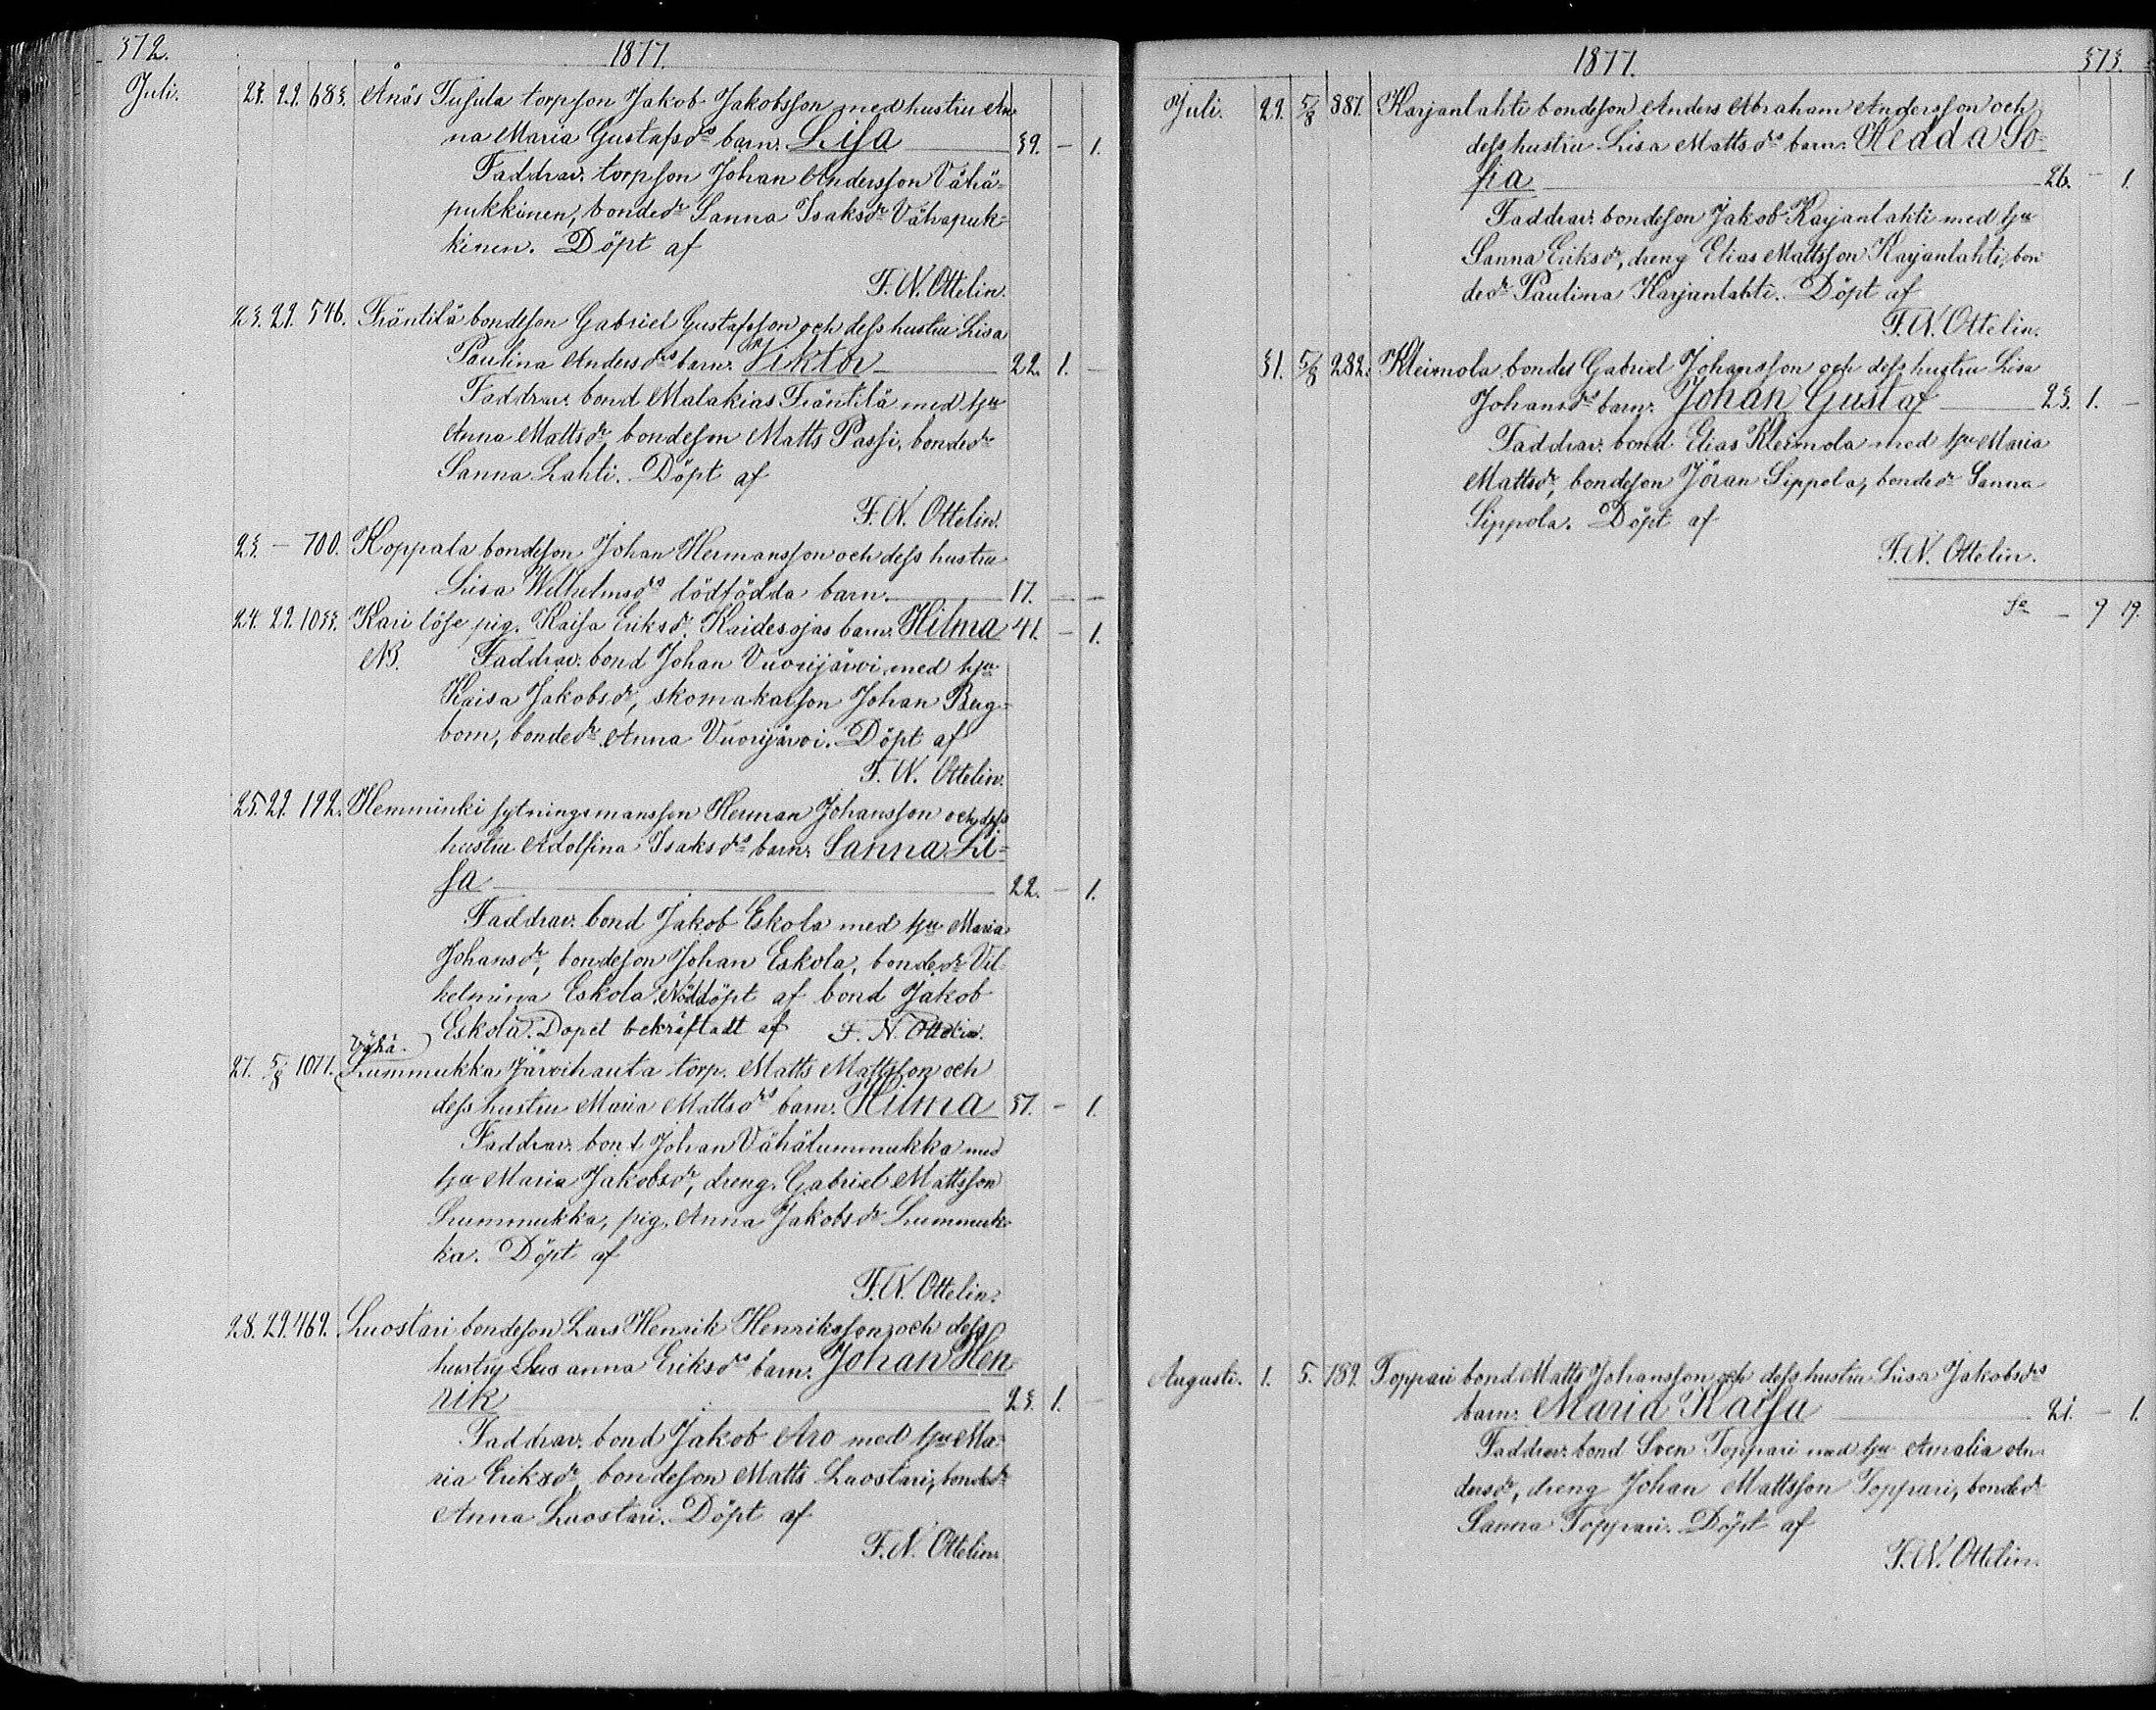 372.
1877.
Juli. 27. 29. 683. Ånäs Tufula torpson Jakob Jakobsson med hustru An-
na Maria Gustafsdrs barn: Lisa 39. - 1.
Faddrar: torpson Johan Andersson Vähä-
pukkinen, bondedr Sanna Isaksdr Vähäpuk-
kinen. Döpt af
F. N. Ottelin.
23. 29. 546. Träntilä bondeson Gabriel Gustafsson och dess hustru Lisa
Paulina Andersdrs barn: Viktor 22. 1. -
Faddrar: bond Malakias Träntilä med hu
Anna Mattsdr, bondeson Matts Passi, bondedr
Sanna Lahti. Döpt af
F. N. Ottelin.
23. - 700. Koppala bondeson Johan Hermansson och dess hustru
Lisa Wilhelmsdrs dödfödda barn. 17. - -
24. 29. 1033. Kari löse pig. Kaisa Eriksdr Kaidesojas barn: Hilma 41. - 1.
NB. Faddrar: bond Johan Vuorijärvi med hu
Kaisa Jakobsdr, skomakarson Johan Berg-
bom, bondedr Anna Vuorijärvi. Döpt af
F. N. Ottelin.
25. 29. 192. Hemminki sytningsmansson Herman Johansson och dess
hustru Adolfina Isaksdrs barn: Sanna Li-
sa 22. - 1.
Faddrar: bond Jakob Eskola med hu Maria
Johansdr, bondeson Johan Eskola, bondedr Vil-
helmina Eskola. Nöddöpt af bond Jakob
Eskola. Dopet bekräftadt af F. N. Ottelin.
Vähä-
27. 5/8 1077. Lummukka Järvihauta torp. Matts Mattsson och
dess hustru Maria Mattsdrs barn: Hilma 37. - 1.
Faddrar: bond Johan Vähälummukka med
hu Maria Jakobsdr, dreng. Gabriel Mattsson
Lummukka, pig. Anna Jakobsdr Lummuk-
ka. Döpt af
F. N. Ottelin.
28. 29. 469. Luostari bondeson Lars Henrik Henriksson och dess
hustru Susanna Eriksdrs barn: Johan Hen-
rik 23. 1. -
Faddrar: bond Jakob Aro med hu Ma-
ria Eriksdr, bondeson Matts Luostari, bondedr
Anna Luostari. Döpt af
F. N. Ottelin.
1877.
373.
Juli. 29. 5/8 387. Karjanlahti bondeson Anders Abraham Andersson och
dess hustru Lisa Mattsdrs barn: Hedda So-
fia 26. - 1.
Faddrar: bondeson Jakob Karjanlahti med hu
Sanna Eriksdr, dreng Elias Mattsson Karjanlahti, bon-
dedr Paulina Karjanlahti. Döpt af
F. N. Ottelin.
31. 5/8 282. Kleimola bondes Gabriel Johansson och dess hustru Lisa
Johansdrs barn: Johan Gustaf 23. 1. -
Faddrar: bond Elias Kleimola med hu Maria
Mattsdr, bondeson Jöran Sippola, bondedr Sanna
Sippola. Döpt af
F. N. Ottelin.
Sa - 9 19.
Augusti. 1. 5. 189. Toppari bond Matts Johansson och dess hustru Lisa Jakobsdrs
barn: Maria Kaisa 21. - 1.
Faddrar: bond Sven Toppari med hu Amalia An-
dersdr, dreng Johan Mattsson Toppari, bondedr
Sanna Toppari. Döpt af
F. N. Ottelin.